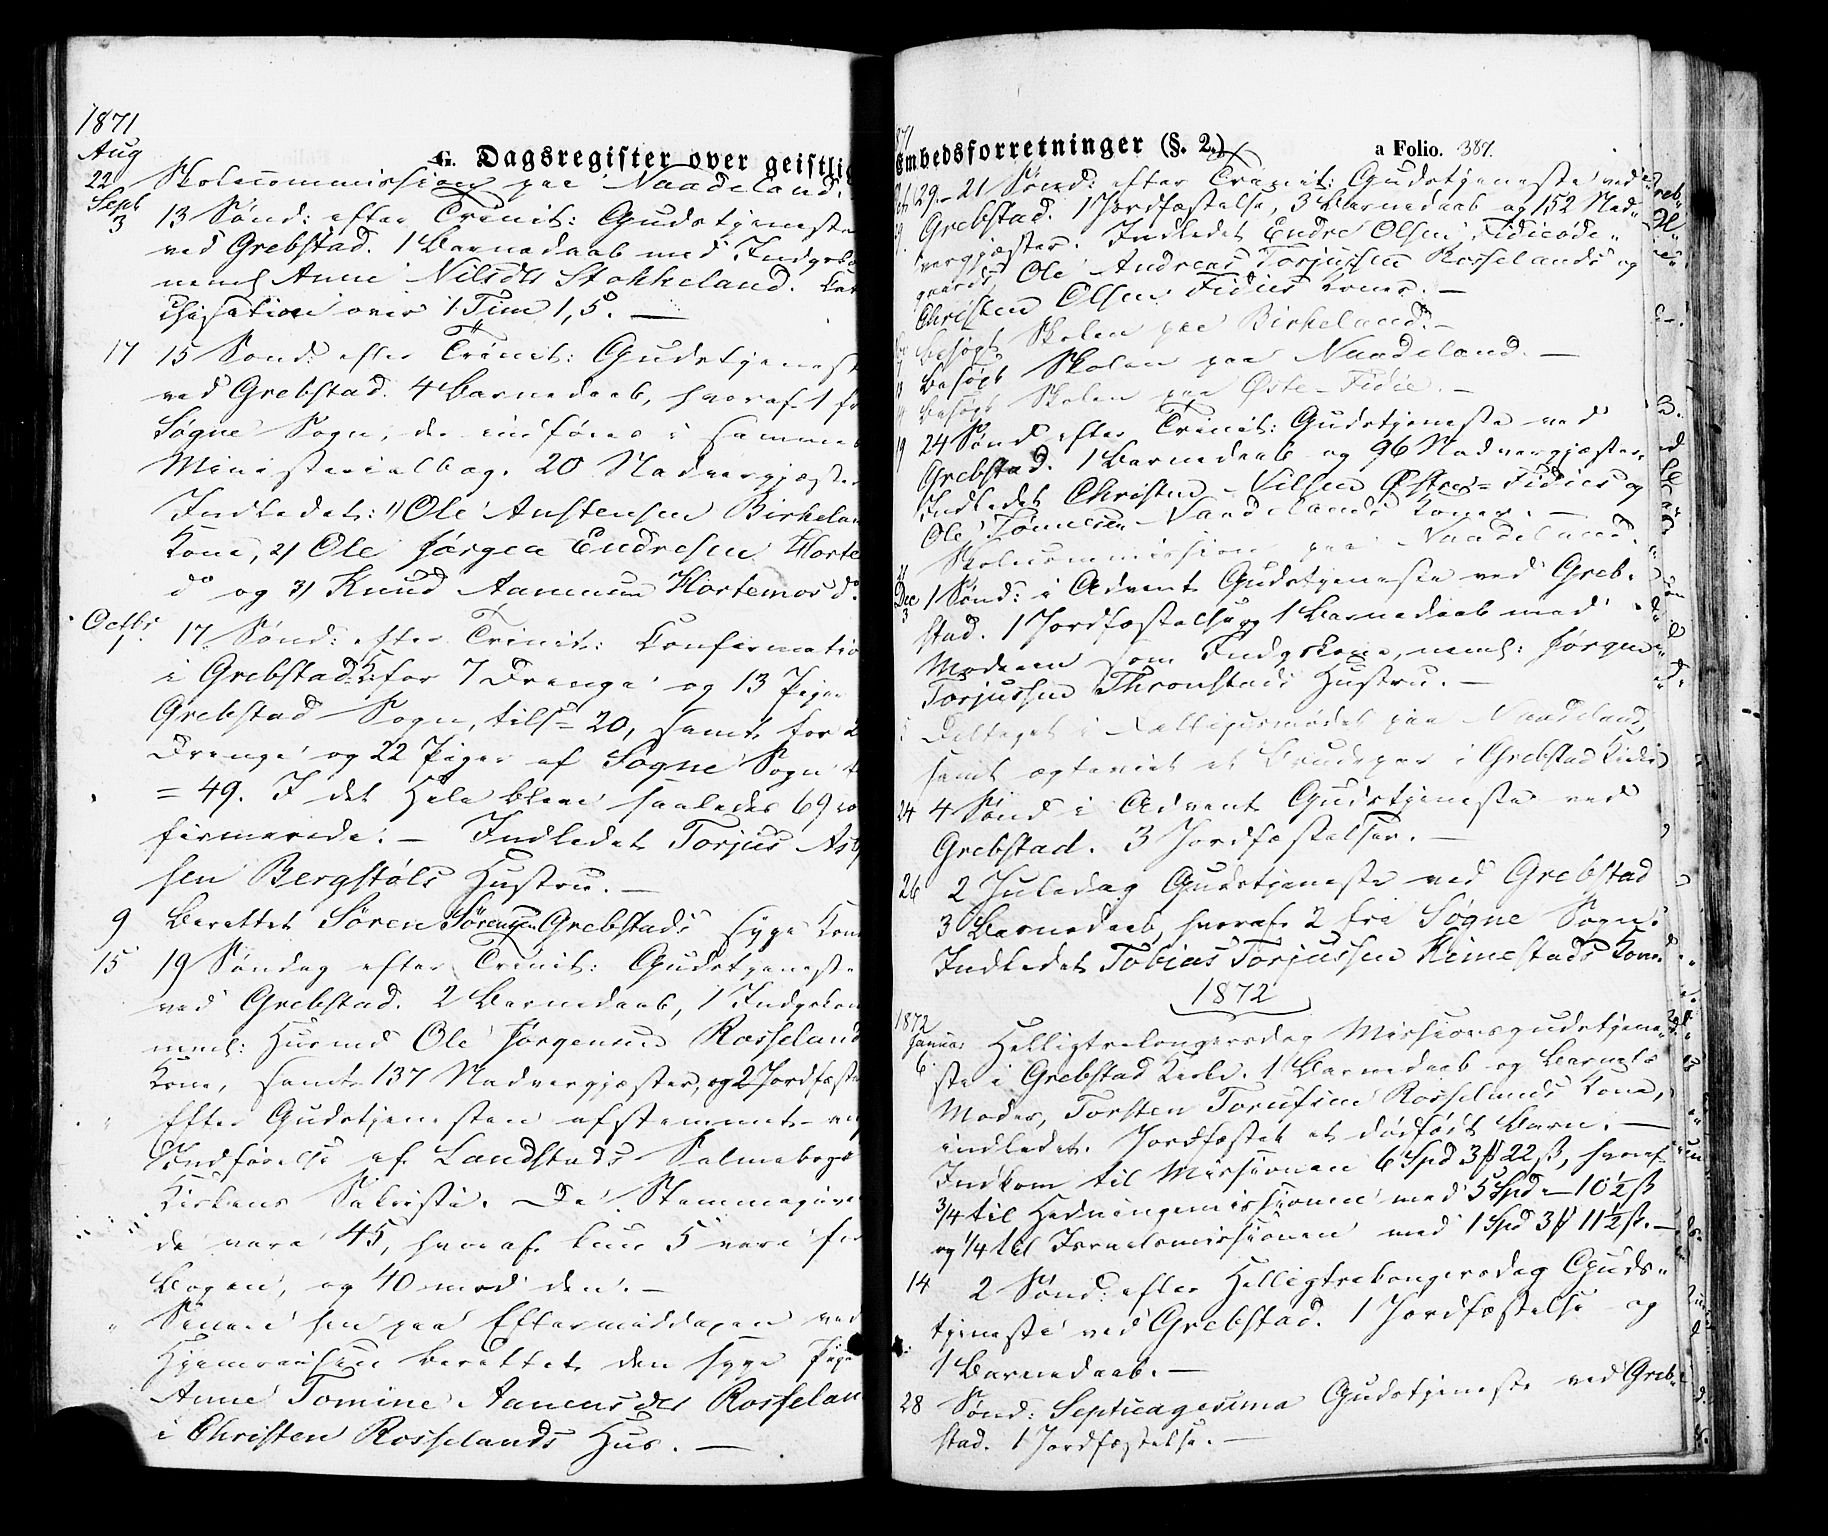 1871
Aug
G. Dagsregister over geistlig
22 Skolecommission paa Naadeland.
Sept
3 13 Sønd: efter Trinit: Gudstjeneste
ved Grebstad. 1 Barnedaab med Indgsko
neml Anne Nilsdtr Stokkeland. Cat
chisation over 1 Tim 1,5. —
17 15 Sønd: efter Trinit: Gudstjenest
ved Grebstad. 4 Barnedaab, hvoraf 1 fr
Søgne Sogn, der indføres i sammes
Ministerialbog. 20 Nadvergjæster
Indledet: 1) Ole Anstensen Birkelan
Kone, 2) Ole Jørgen Endresen Horte
do og 3) Knud Aanensen Hortemos do.
Octbr
1 17 Sønd: efter Trinit: Confirmatio
i Grebstad K: for 7 Drenge og 13 Piger
Grebstad Sogn, tils = 20, samt for 2
Drenge og 22 Piger af Søgne Sogn
= 49. I det Hele bleve saaledes 69 co
firmerede. — Indledet Torjus Asb
sen Bergstøls Hustru. —
9 Berettet Søren Sørensen Grebstads syge Kone
15 19 Søndag efter Trinit: Gudstjeneste
ved Grebstad. 2 Barnedaab, 1 Indgskon
neml: Husmd Ole Jørgensen Rosseland
Kone, samt 137 Nadvergjæster, og 2 Jordfæste
" Efter Gudstjenesten afstemmet om
Indførelse af Landstads Salmebog i
Kirkens Sakristi. De Stemmegive
de vare 45, hvoraf kun 5 vare for
Bogen, og 40 mod den. —
" Senere hen paa Eftermiddagen ved
Hjemreisen berettet den syge Pige
Anne Tomine Aanensdtr Rosselan
i Christen Rosselands Hus. —
embedsforretninger (§. 2.) a Folio. 387.
29. 21 Sønd: efter Trinit: Gudstjeneste ved
Grebstad. 1 Jordfæstelse, 3 Barnedaab og 152 Nad"
vergjæster. Indledet Endre Olsen Fidieøde"
gaards, Ole Andreas Torjussen Rosselands og
Christen Olsen Fidies Koner. —
Besøgt Skolen paa Birkeland. —
Besøgt Skolen paa Naadeland. —
Besøgt Skolen paa Øste-Fidie. —
19 24 Sønd efter Trinit: Gudstjeneste ved
Grebstad. 1 Barnedaab og 96 Nadvergjæster
Indledet Christen Nilsen Østre= Fidies og
Ole Tønnesen Naadelands Koner. —
Skolecommission paa Naadeland.
Dec
3 1 Sønd: i Advent Gudstjeneste ved Greb"
stad. 1 Jordfæstelse og 1 Barnedaab med
Moderen som Indgskone, neml: Jørgen
Torjussen Thronstads Hustru. —
Deltaget i Valgmødet paa Naadeland,
samt ægteviet et Brudepar i Grebstad Kirke
24 4 Sønd i Advent Gudstjeneste ved
Grebstad. 3 Jordfæstelser. —
26 2 Juledag Gudstjeneste ved Grebstad
3 Barnedaab, hvoraf 2 fra Søgne Sogn.
Indledet Tobias Torjussen Rimestads Kone
1872
1872
Januar
6 Helligtrekongersdag Missionsgudstjene"
ste i Grebstad Kirke. 1 Barnedaab og Barnets
Moder, Torsten Torufsen Rosselands Kone,
indledet. Jordfæstet et dødfødt Barn. —
Indkom til Missionen 6 Spd 3 # 22 ß, hvoraf
3/4 til Hedningemissionen med 5 Spd - 10 1/2 ß
og 1/4 til Israelsmissionen med 1 Spd 3 # 11 1/2 ß. —
14 2 Sønd: efter Helligtrekongersdag Guds"
tjeneste ved Grebstad. 1 Jordfæstelse og
1 Barnedaab. —
28 Sønd: Septuagesima Gudstjeneste ved Greb"
stad. 1 Jordfæstelse. —